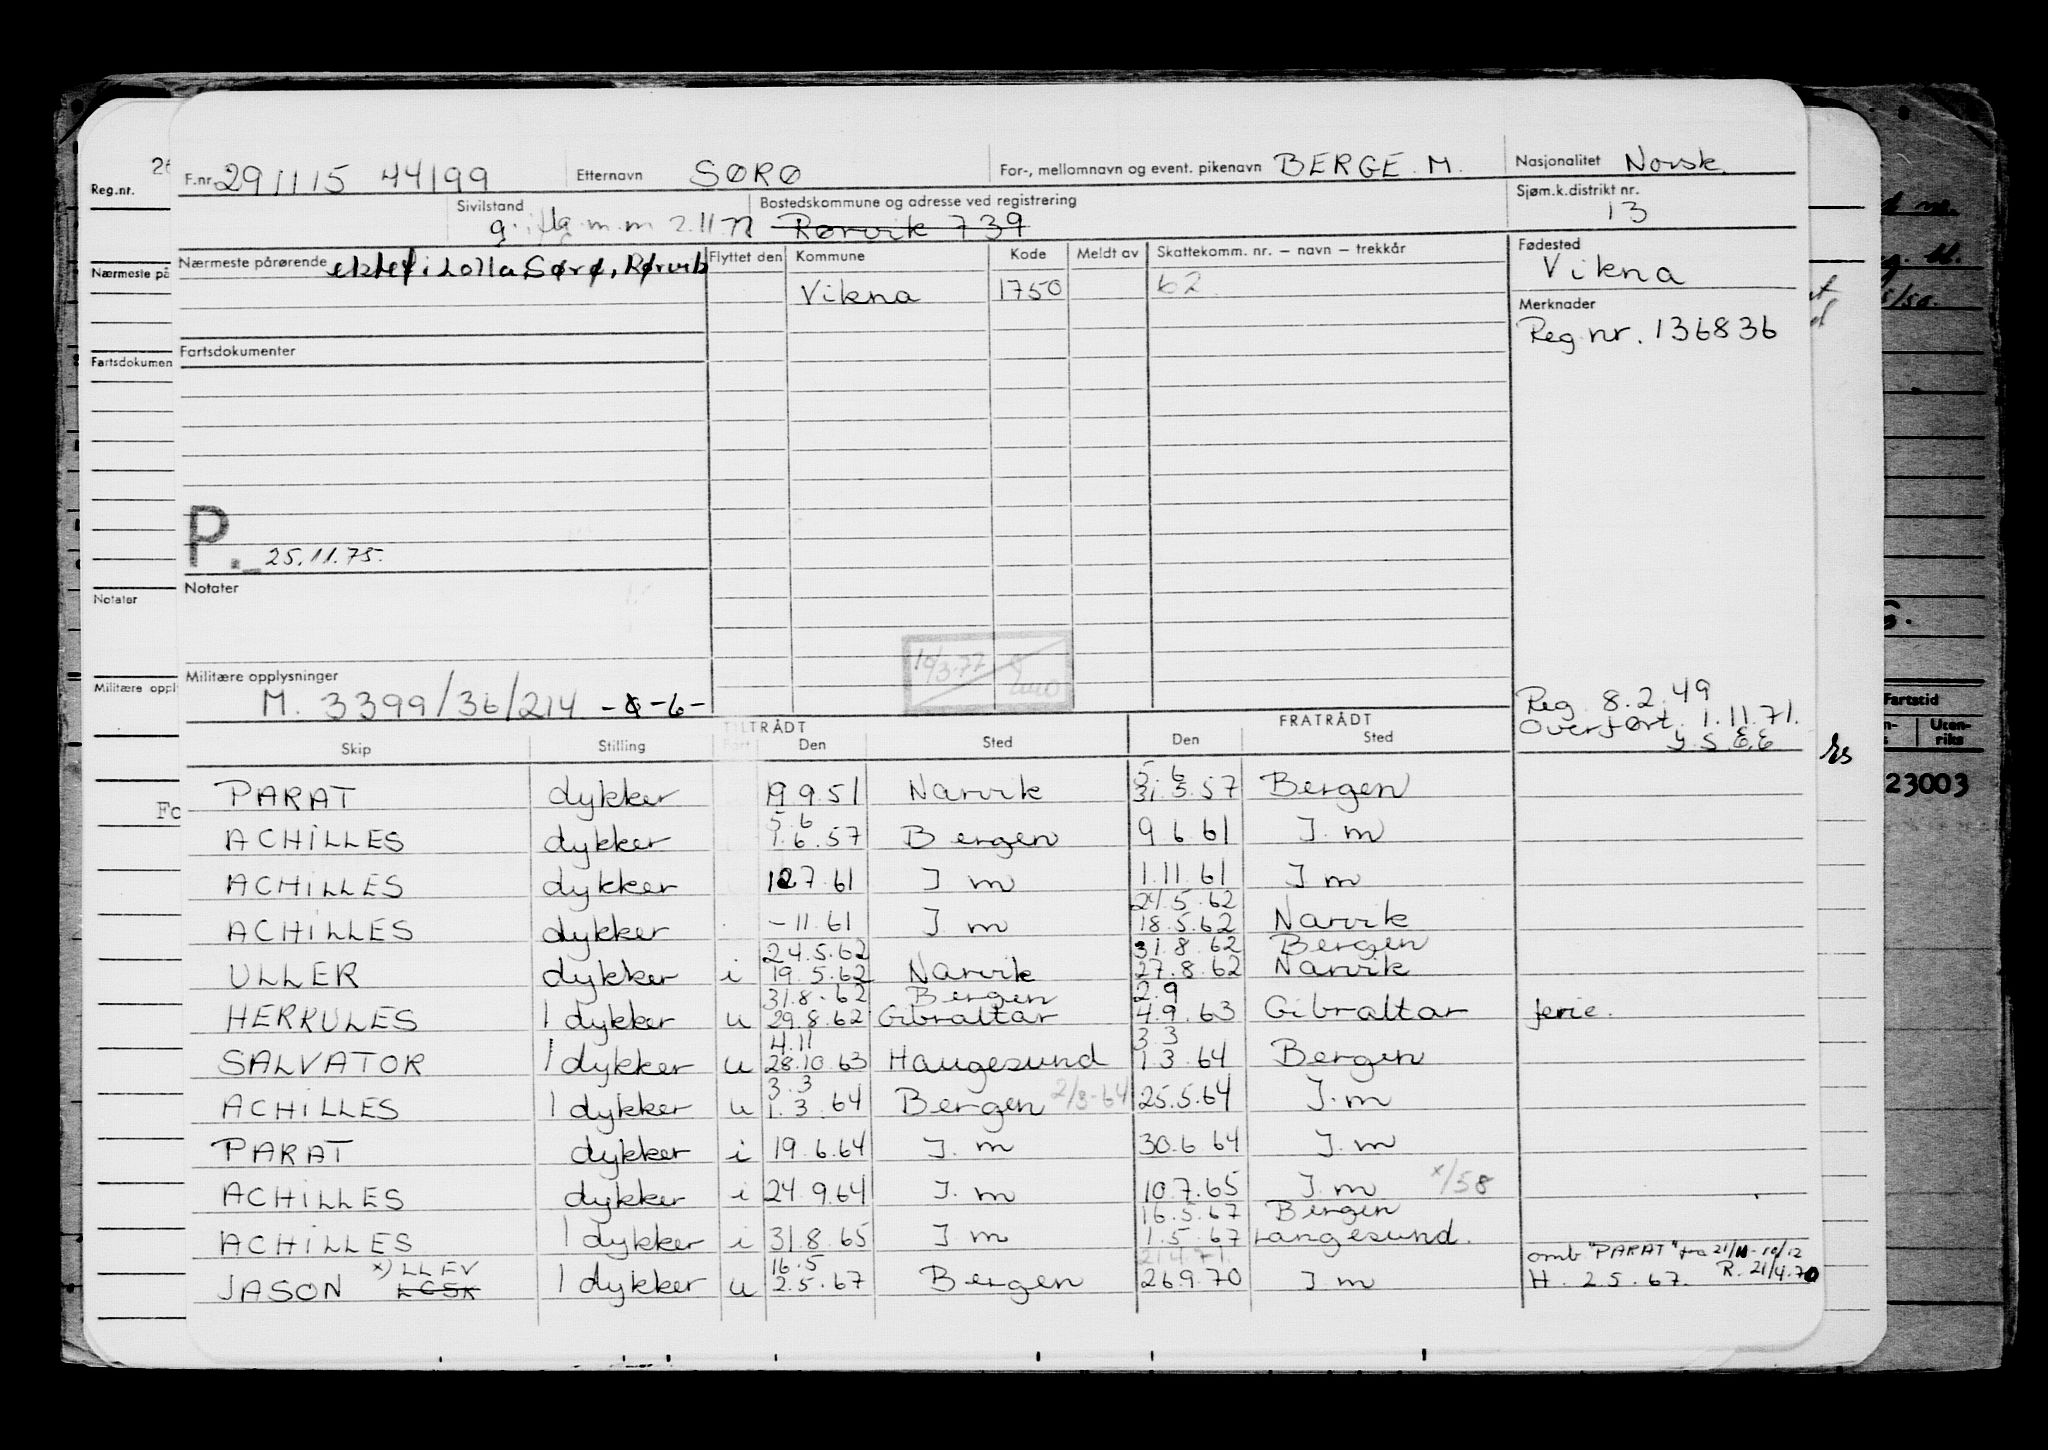 F.nr. 291115 44199 Etternavn SØRØ For-, mellomnavn og event. pikenavn BERGE. M. Nasjonalitet Norsk.
Reg.nr. 26
Sivilstand g. Bostedskommune og adresse ved registrering Rørvik 739 Sjøm.k.distrikt nr. 13
Nærmeste på
Nærmeste pårørende Lolla Sørø, Rørvik Flyttet den Kommune Kode Meldt av Skattekomm. nr. – navn – trekkår Fødested Vikna
Vikna 1750 62
Merknader
Reg.nr. 136836
Fartsdokumen
Fartsdokumenter
P. 25.11.75.
Notater
Notater
Militære oppl
Militære opplysninger
M. 3399/36/214 -6-
10/3.77
Reg. 8.2.49
Overført. 1.11.71.
y. S E.E
TILTRÅDT FRATRÅDT
Skip Stilling Fart Den Sted Den Sted
Fartstid
Uten-
riks
23003
Fo
5.6
PARAT dykker 19 9.51 Narvik 31.5.57 Bergen
5.6
ACHILLES dykker 1.6.57 Bergen 9.6.61 I.m
ACHILLES dykker 127.61 I m 1.11.61 I m
24.5.62
ACHILLES dykker -11.61 I m 18.5.62 Narvik
24.5.62 31.8.62 Bergen
ULLER dykker i 19.5.62 Narvik 27.8.62 Narvik
31.8.62 Bergen 2.9
HERKULES 1 dykker u 29.8.62 Gibraltar 4.9.63 Gibraltar ferie.
4.11 3.3
SALVATOR 1 dykker u 28.10.63 Haugesund 1.3.64 Bergen
3.3
ACHILLES 1 dykker u 1.3.64 Bergen 2/3-64 25.5.64 I.m
PARAT dykker i 19.6.64 I.m 30.6 64 I.m
ACHILLES dykker i 24.9.64 I.m 10.7.65 I.m x/58
16.5.67 Bergen
ACHILLES 1 dykker i 31.8.65 I.m 1.5.67 Langesund.
x) LLEV 16.5 21.4.71. omb "PARAT" fra 21/11-10/12
JASON LCSK 1 dykker u 2.5.67 Bergen 26.9.70 I.m H. 2.5.67. R. 21/4.70